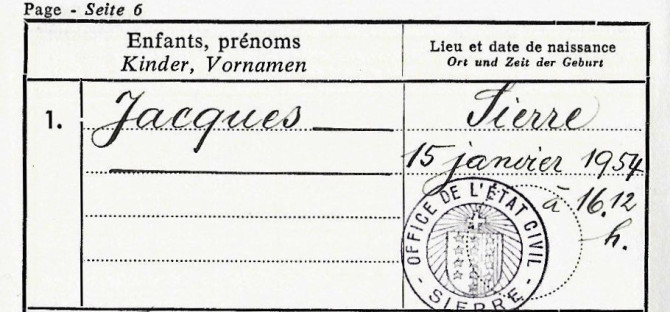 Page - Seite 6
Enfants, prénoms
Kinder, Vornamen
Lieu et date de naissance
Ort und Zeit der Geburt
1. Jacques
Sierre
15 janvier 1954
à 16.12
h.
OFFICE DE L'ÉTAT CIVIL
- SIERRE -